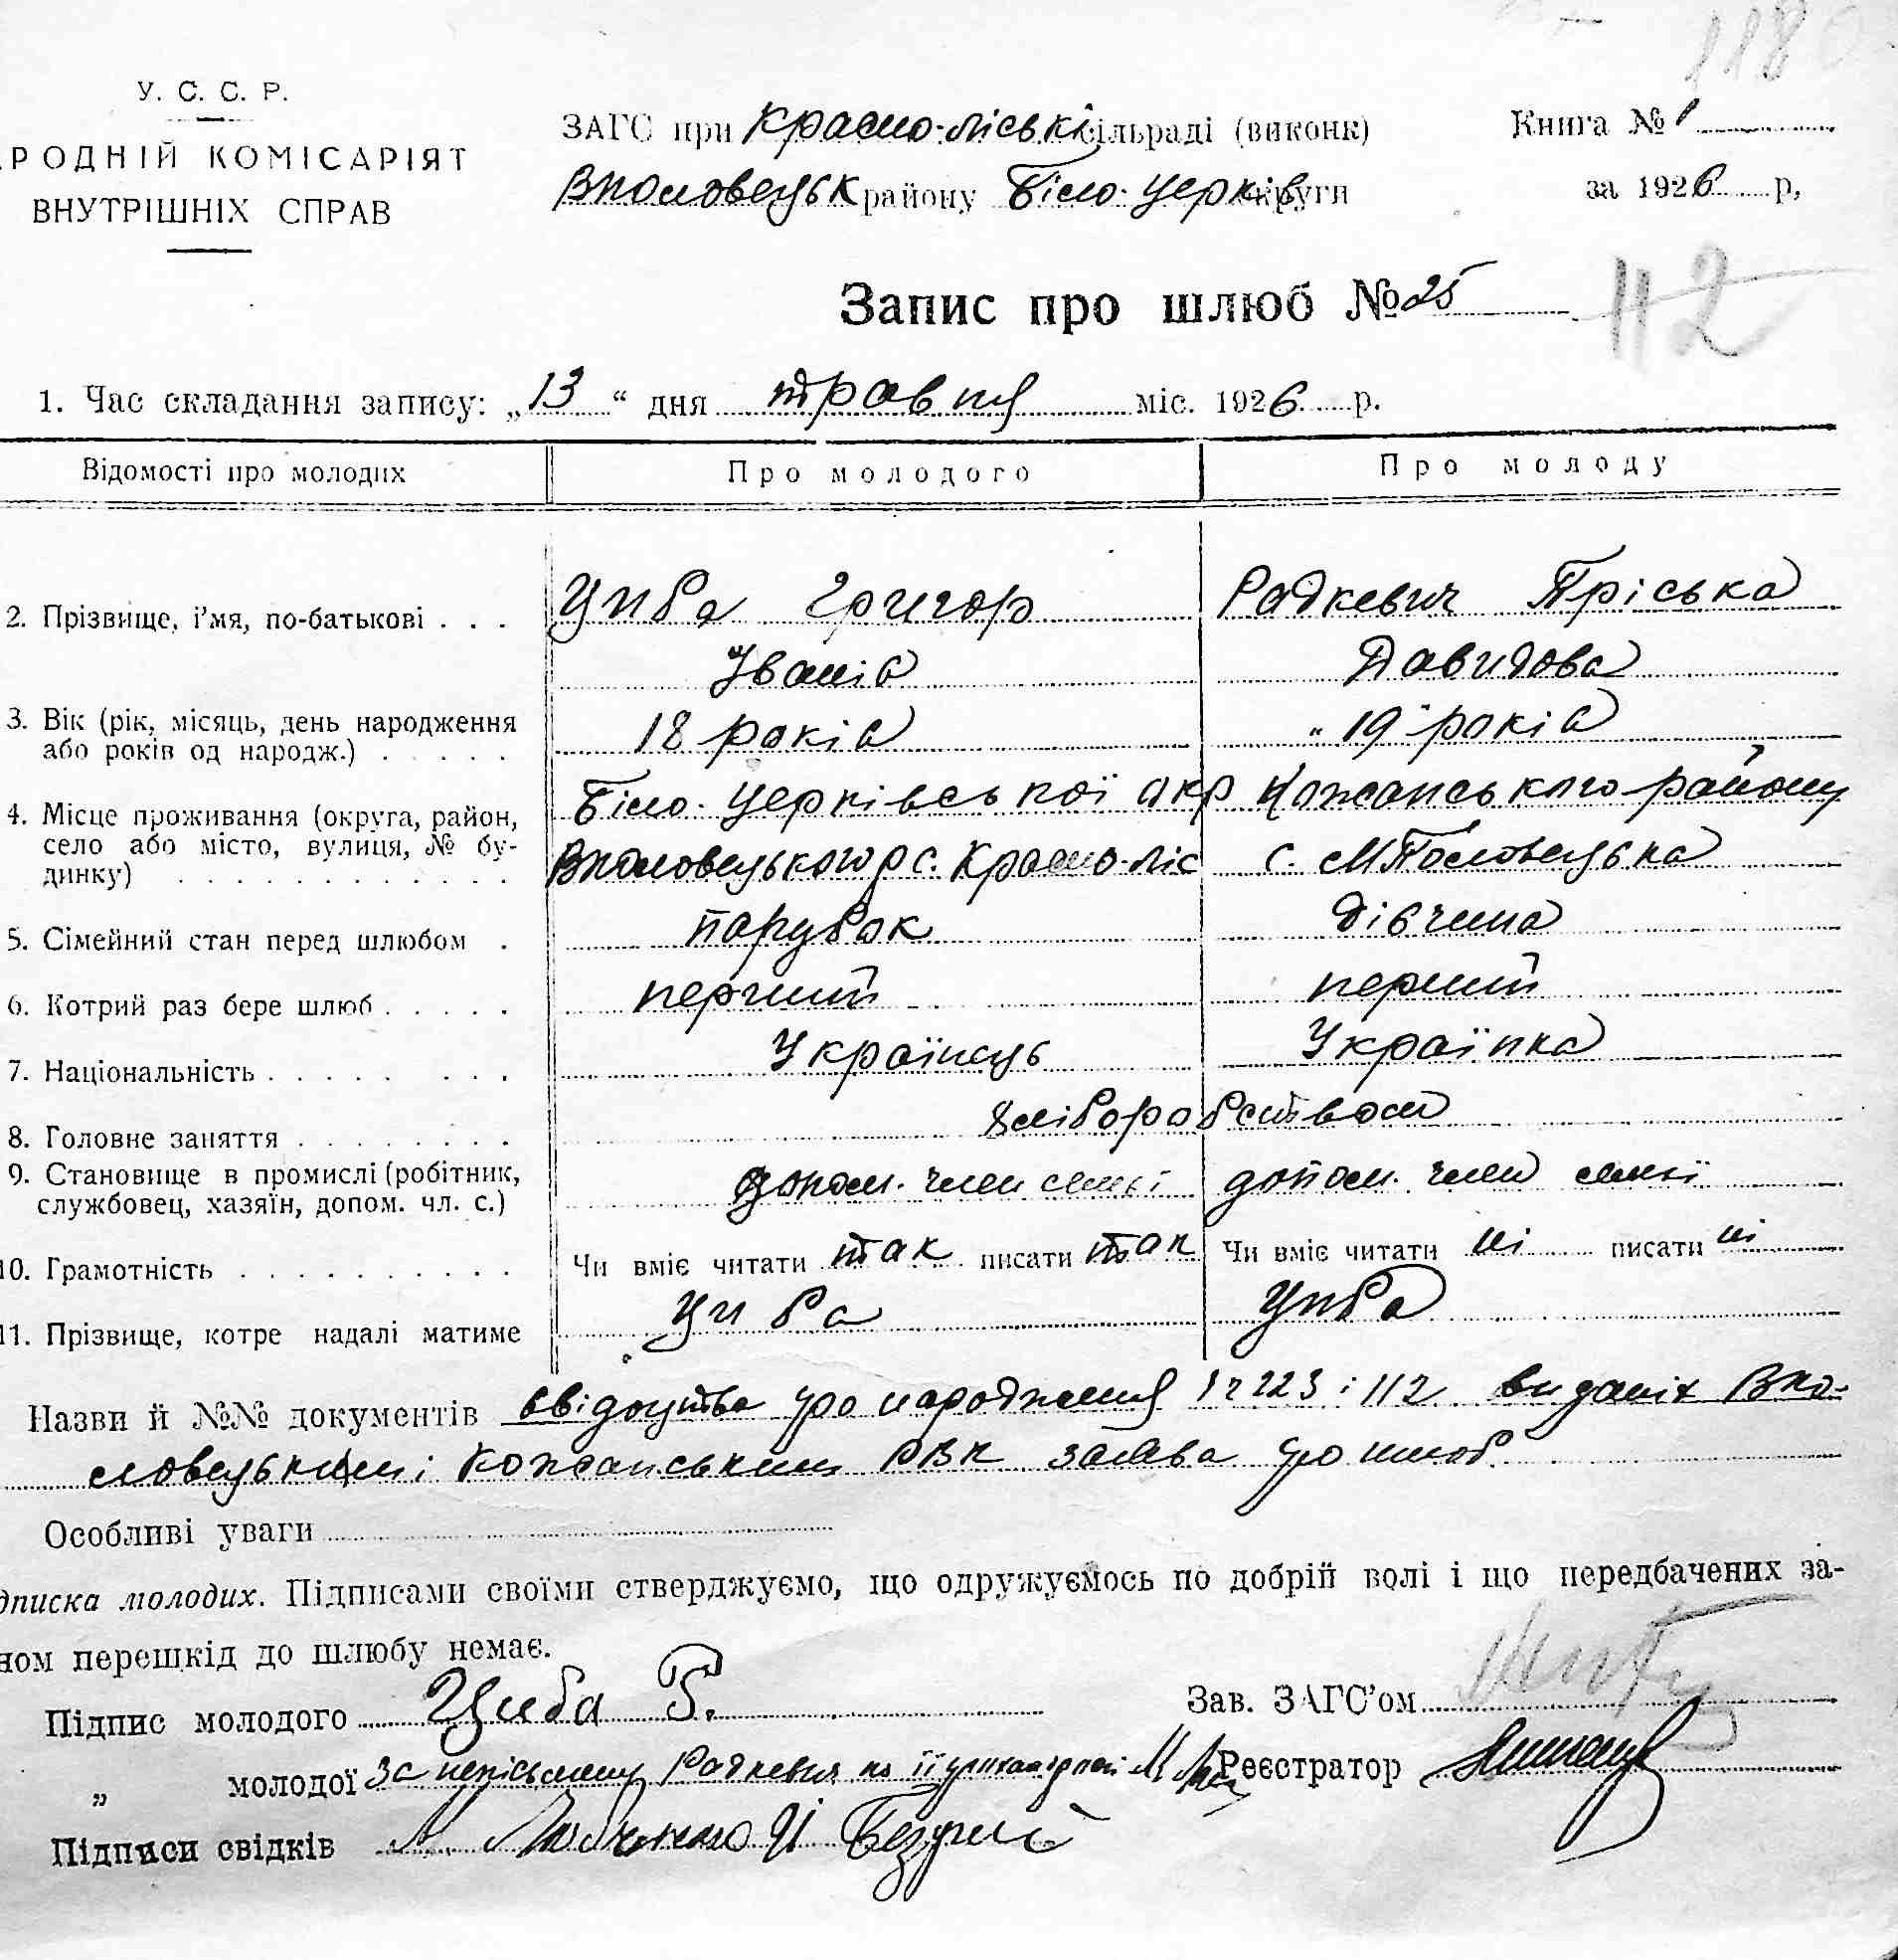 118
У. С. С. Р.
РОДНІЙ КОМІСАРІЯТ
ВНУТРІШНІХ СПРАВ
ЗАГС при Красно-ліські сільраді (виконк)
Вполовецьк району Біло-Церків округи
Книга № 1
за 1926 р,
Запис про шлюб № 25
112
1. Час складання запису: „13“ дня травня міс. 1926 р.
Відомості про молодих Про молодого Про молоду
2. Прізвище, і'мя, по-батькові . . . Циба Григор Радкевич Пріська
Іванів Давидова
3. Вік (рік, місяць, день народження
або років од народж.) . . . . . 18 років 19 років
4. Місце проживання (округа, район,
село або місто, вулиця, № бу-
динку) . . . . . . . . . . . .
Біло-Церківської окр Кожанського району
Вполовецького р с. Красно-ліс с. МПоловецька
5. Сімейний стан перед шлюбом . парубок дівчина
6. Котрий раз бере шлюб . . . . . перший перший
7. Національність . . . . . . . . Українець Українка
8. Головне заняття . . . . . . . . хліборобством
9. Становище в промислі (робітник,
службовец, хазяїн, допом. чл. с.)
допом. член семьї допом. член семьї
10. Грамотність . . . . . . . . . . Чи вміє читати так писати так Чи вміє читати ні писати ні
11. Прізвище, котре надалі матиме Циба Циба
Назви й №№ документів свідоцтва про народження 223 і 112 виданіх Впо-
ловецьким і Кожанським РВК заява про шлюб
Особливі уваги
дписка молодих. Підписами своїми стверджуємо, що одружуємось по добрій волі і що передбачених за-
ном перешкід до шлюбу немає.
Підпис молодого Циба Г. Зав. ЗАГС'ом
„ молодої за непісьменну Радкевич по її Реєстратор
Підписи свідків